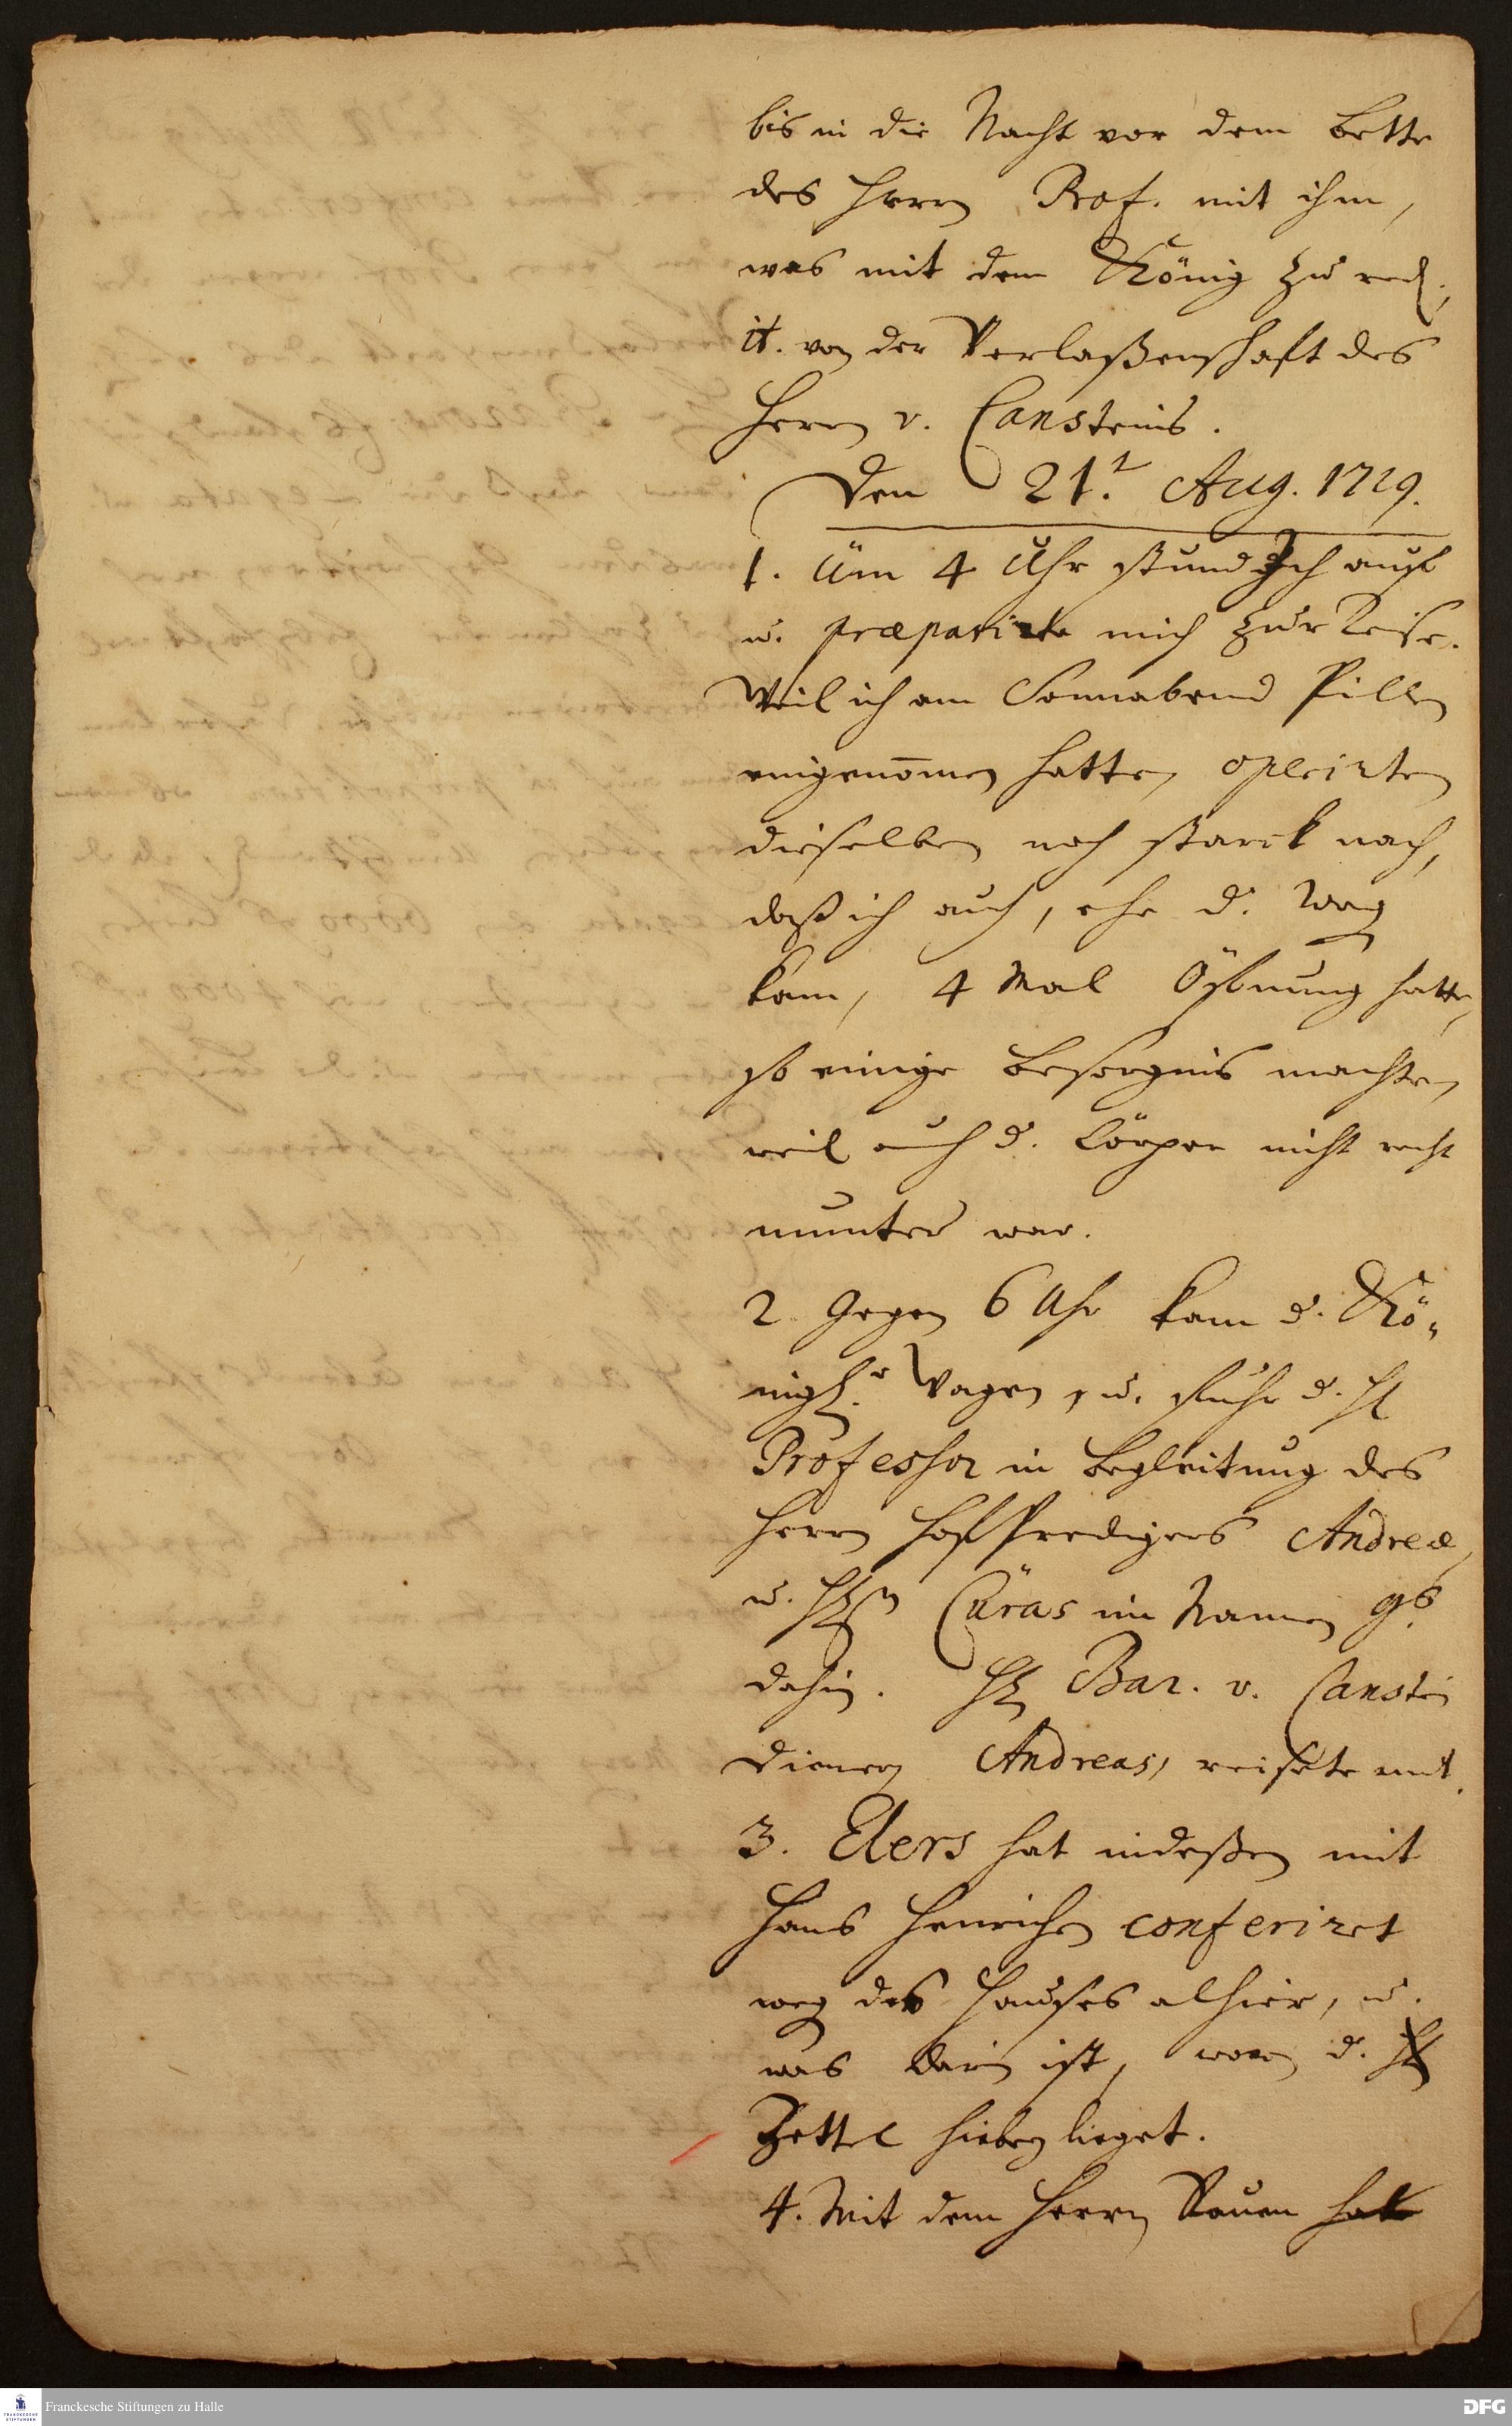 bis in die Nacht vor dem Bette
des Herrn Prof. mit ihm,
was mit dem König zu red.,
it. von der Verlaßenschaft des
Herrn v. Cansteins.
Den 21.t Aug. 1719.
1. Üm 4 Uhr stund Ich auf
u. præparirte mich zur Reise.
Weil ich am Sonnabend Pillen
eingenom̄en hatte, operirten
dieselben noch starck nach,
daß ich auch, ehe d. Wag
kam, 4 Mal Öfnung hatte,
so einige Besorgnis machte,
weil auch d. Cörper nicht recht
munter war.
2. Gegen 6 Uhr kam d. Kö-
nigl.e Wagen, u. fuhr d. H
Professor in Begleitung des
Herrn Hof Predigers Andreæ,
u. HEn Cüras im Namen
dahin. HE Bar. v. Canstein
Diener Andreas, reisete mit.
3. Elers hat indeßen mit
Hans Henrichen conferiret
weg des Hauses alhier, u.
was darin ist, wovon d.
Zettel hiebey lieget.
4. Mit dem Herrn Rauen
Franckesche Stiftungen zu Halle
DFG